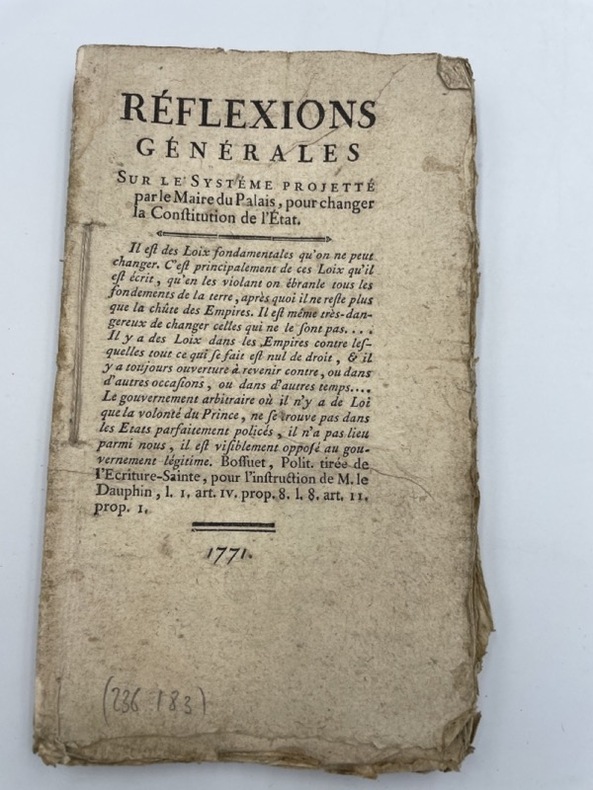 RÉFLEXIONS
GÉNÉRALES
SUR LE SYSTÉME PROJETTÉ
par le Maire du Palais, pour changer
la Conſtitution de l'État.
Il eſt des Loix fondamentales qu'on ne peut
changer. C'eſt principalement de ces Loix qu'il
eſt écrit, qu'en les violant on ébranle tous les
fondements de la terre, après quoi il ne reſte plus
que la chûte des Empires. Il eſt même très-dan-
gereux de changer celles qui ne le ſont pas....
Il y a des Loix dans les Empires contre leſ-
quelles tout ce qui ſe fait eſt nul de droit, & il
y a toujours ouverture à revenir contre, ou dans
d'autres occaſions, ou dans d'autres temps....
Le gouvernement arbitraire où il n'y a de Loi
que la volonté du Prince, ne ſe trouve pas dans
les Etats parfaitement policés, il n'a pas lieu
parmi nous, il eſt viſiblement oppoſé au gou-
vernement légitime. Boſſuet, Polit. tirée de
l'Ecriture-Sainte, pour l'inſtruction de M. le
Dauphin, l. 1. art. IV. prop. 8. l. 8. art. 11.
prop. 1.
1771.
(236 183)